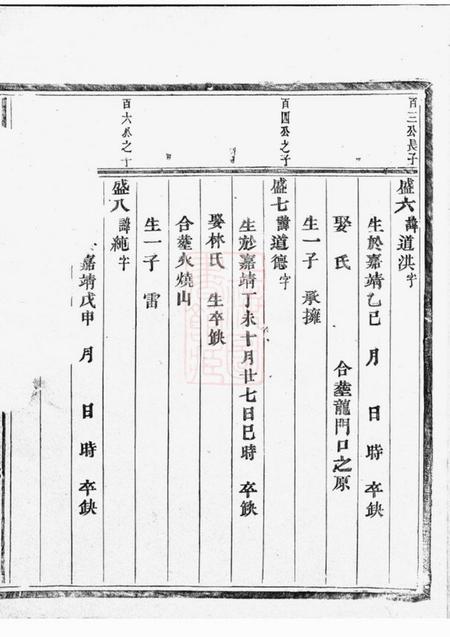 百三公長子
盛六諱道洪字
生於嘉靖乙巳 月 日 時 卒缺
娶 氏 合塟龍門口之原
生一子 承擁
百四公之子
盛七諱道德字
生於嘉靖丁未十月廿七日巳時 卒缺
娶林氏 生卒缺
合塟火燒山
生一子 雷
百六公之子
盛八諱純字
嘉靖戊申 月 日 時 卒缺